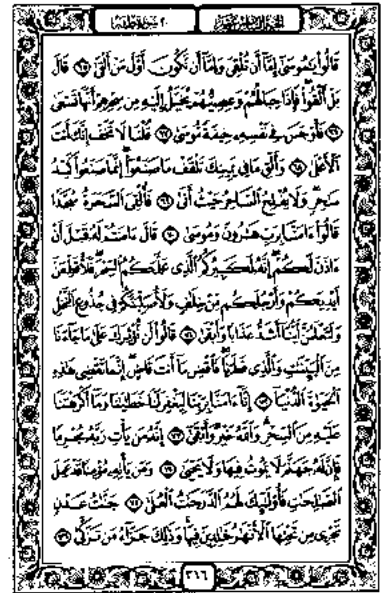 ٢٠ سورة طه
قَالُوا۟ يَـٰمُوسَىٰٓ إِمَّآ أَن تُلْقِىَ وَإِمَّآ أَن نَّكُونَ أَوَّلَ مَنْ أَلْقَىٰ ٦٥ قَالَ
بَلْ أَلْقُوا۟ فَإِذَا حِبَالُهُمْ وَعِصِيُّهُمْ يُخَيَّلُ إِلَيْهِ مِن سِحْرِهِمْ أَنَّهَا تَسْعَىٰ
٦٦ فَأَوْجَسَ فِى نَفْسِهِۦ خِيفَةً مُّوسَىٰ ٦٧ قُلْنَا لَا تَخَفْ إِنَّكَ أَنتَ
ٱلْأَعْلَىٰ ٦٨ وَأَلْقِ مَا فِى يَمِينِكَ تَلْقَفْ مَا صَنَعُوٓا۟ إِنَّمَا صَنَعُوا۟ كَيْدُ
سَـٰحِرٍ وَلَا يُفْلِحُ ٱلسَّاحِرُ حَيْثُ أَتَىٰ ٦٩ فَأُلْقِىَ ٱلسَّحَرَةُ سُجَّدًا
قَالُوٓا۟ ءَامَنَّا بِرَبِّ هَـٰرُونَ وَمُوسَىٰ ٧٠ قَالَ ءَامَنتُمْ لَهُۥ قَبْلَ أَنْ
ءَاذَنَ لَكُمْ إِنَّهُۥ لَكَبِيرُكُمُ ٱلَّذِى عَلَّمَكُمُ ٱلسِّحْرَ فَلَأُقَطِّعَنَّ
أَيْدِيَكُمْ وَأَرْجُلَكُم مِّنْ خِلَـٰفٍ وَلَأُصَلِّبَنَّكُمْ فِى جُذُوعِ ٱلنَّخْلِ
وَلَتَعْلَمُنَّ أَيُّنَآ أَشَدُّ عَذَابًا وَأَبْقَىٰ ٧١ قَالُوا۟ لَن نُّؤْثِرَكَ عَلَىٰ مَا جَآءَنَا
مِنَ ٱلْبَيِّنَـٰتِ وَٱلَّذِى فَطَرَنَا فَٱقْضِ مَآ أَنتَ قَاضٍ إِنَّمَا تَقْضِى هَـٰذِهِ
ٱلْحَيَوٰةَ ٱلدُّنْيَآ ٧٢ إِنَّآ ءَامَنَّا بِرَبِّنَا لِيَغْفِرَ لَنَا خَطَـٰيَـٰنَا وَمَآ أَكْرَهْتَنَا
عَلَيْهِ مِنَ ٱلسِّحْرِ وَٱللَّهُ خَيْرٌ وَأَبْقَىٰٓ ٧٣ إِنَّهُۥ مَن يَأْتِ رَبَّهُۥ مُجْرِمًا
فَإِنَّ لَهُۥ جَهَنَّمَ لَا يَمُوتُ فِيهَا وَلَا يَحْيَىٰ ٧٤ وَمَن يَأْتِهِۦ مُؤْمِنًا قَدْ عَمِلَ
ٱلصَّـٰلِحَـٰتِ فَأُو۟لَـٰٓئِكَ لَهُمُ ٱلدَّرَجَـٰتُ ٱلْعُلَىٰ ٧٥ جَنَّـٰتُ عَدْنٍ
تَجْرِى مِن تَحْتِهَا ٱلْأَنْهَـٰرُ خَـٰلِدِينَ فِيهَا وَذَٰلِكَ جَزَآءُ مَن تَزَكَّىٰ ٧٦
٣١٦